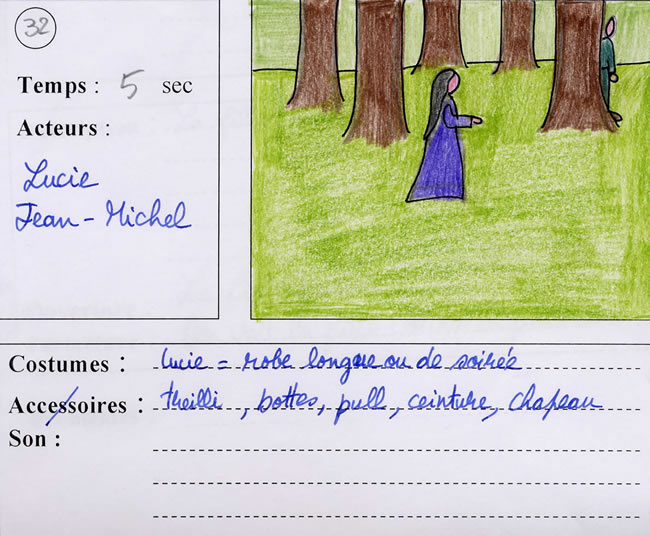 32
Temps : 5 sec
Acteurs :
Lucie
Jean-Michel
Costumes : Lucie = robe longue ou de soirée
Accessoires : treilli, bottes, pull, ceinture, chapeau
Son :